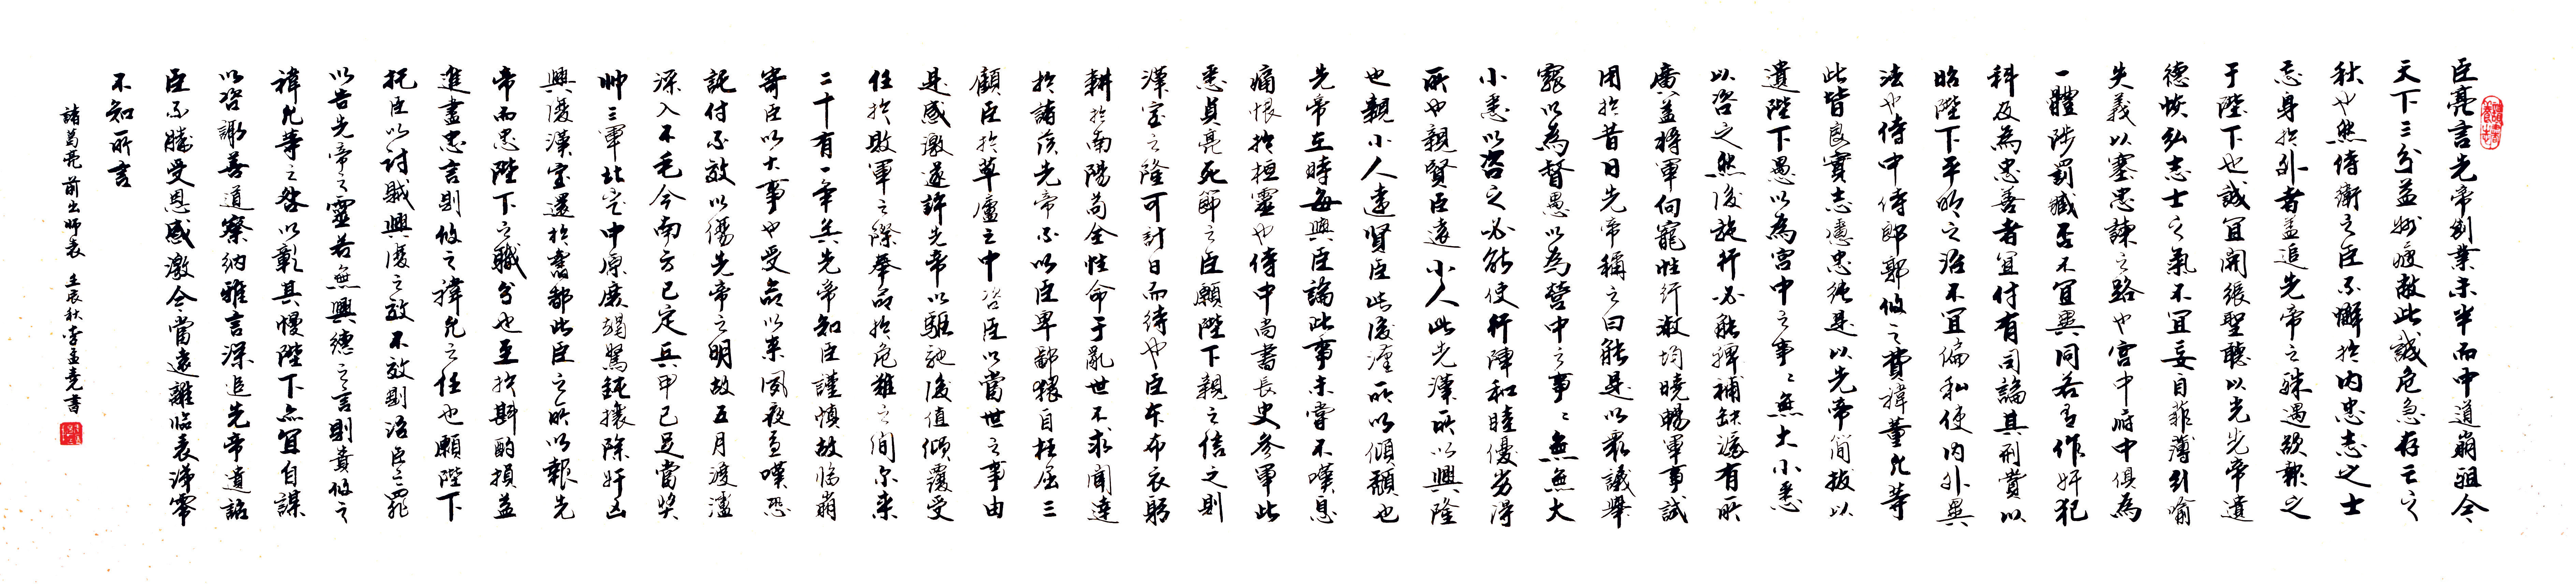 臣亮言先帝創業未半而中道崩殂今
天下三分益州疲敝此誠危急存亡之
秋也然侍衛之臣不懈於內忠志之士
忘身於外者蓋追先帝之殊遇欲報之
于陛下也誠宜開張聖聽以光先帝遺
德恢弘志士之氣不宜妄自菲薄引喻
失義以塞忠諫之路也宮中府中俱為
一體陟罰臧否不宜異同若有作奸犯
科及為忠善者宜付有司論其刑賞以
昭陛下平明之治不宜偏私使內外異
法也侍中侍郎郭攸之費禕董允等
此皆良實志慮忠純是以先帝簡拔以
遺陛下愚以為宮中之事〻無大小悉
以咨之然後施行必能裨補缺漏有所
廣益將軍向寵性行淑均曉暢軍事試
用於昔日先帝稱之曰能是以眾議舉
寵以為督愚以為營中之事〻無無大
小悉以咨之必能使行陣和睦優劣得
所也親賢臣遠小人此先漢所以興隆
也親小人遠賢臣此後漢所以傾頹也
先帝在時每與臣論此事未嘗不嘆息
痛恨於桓靈也侍中尚書長史參軍此
悉貞亮死節之臣願陛下親之信之則
漢室之隆可計日而待也臣本布衣躬
耕於南陽苟全性命于亂世不求聞達
於諸侯先帝不以臣卑鄙猥自枉屈三
顧臣於草廬之中咨臣以當世之事由
是感激遂許先帝以驅馳後值傾覆受
任於敗軍之際奉命於危難之間爾來
二十有一年矣先帝知臣謹慎故臨崩
寄臣以大事也受命以來夙夜憂嘆恐
託付不效以傷先帝之明故五月渡瀘
深入不毛今南方已定兵甲已足當獎
帥三軍北定中原庶竭駑鈍攘除奸凶
興復漢室還於舊都此臣之所以報先
帝而忠陛下之職分也至於斟酌損益
進盡忠言則攸之禕允之任也願陛下
托臣以討賊興復之效不效則治臣之罪
以告先帝之靈若無興德之言則責攸之
禕允等之咎以彰其慢陛下亦宜自謀
以咨諏善道察納雅言深追先帝遺詔
臣不勝受恩感激今當遠離臨表涕零
不知所言
諸葛亮前出師表 壬辰秋李孟堯書